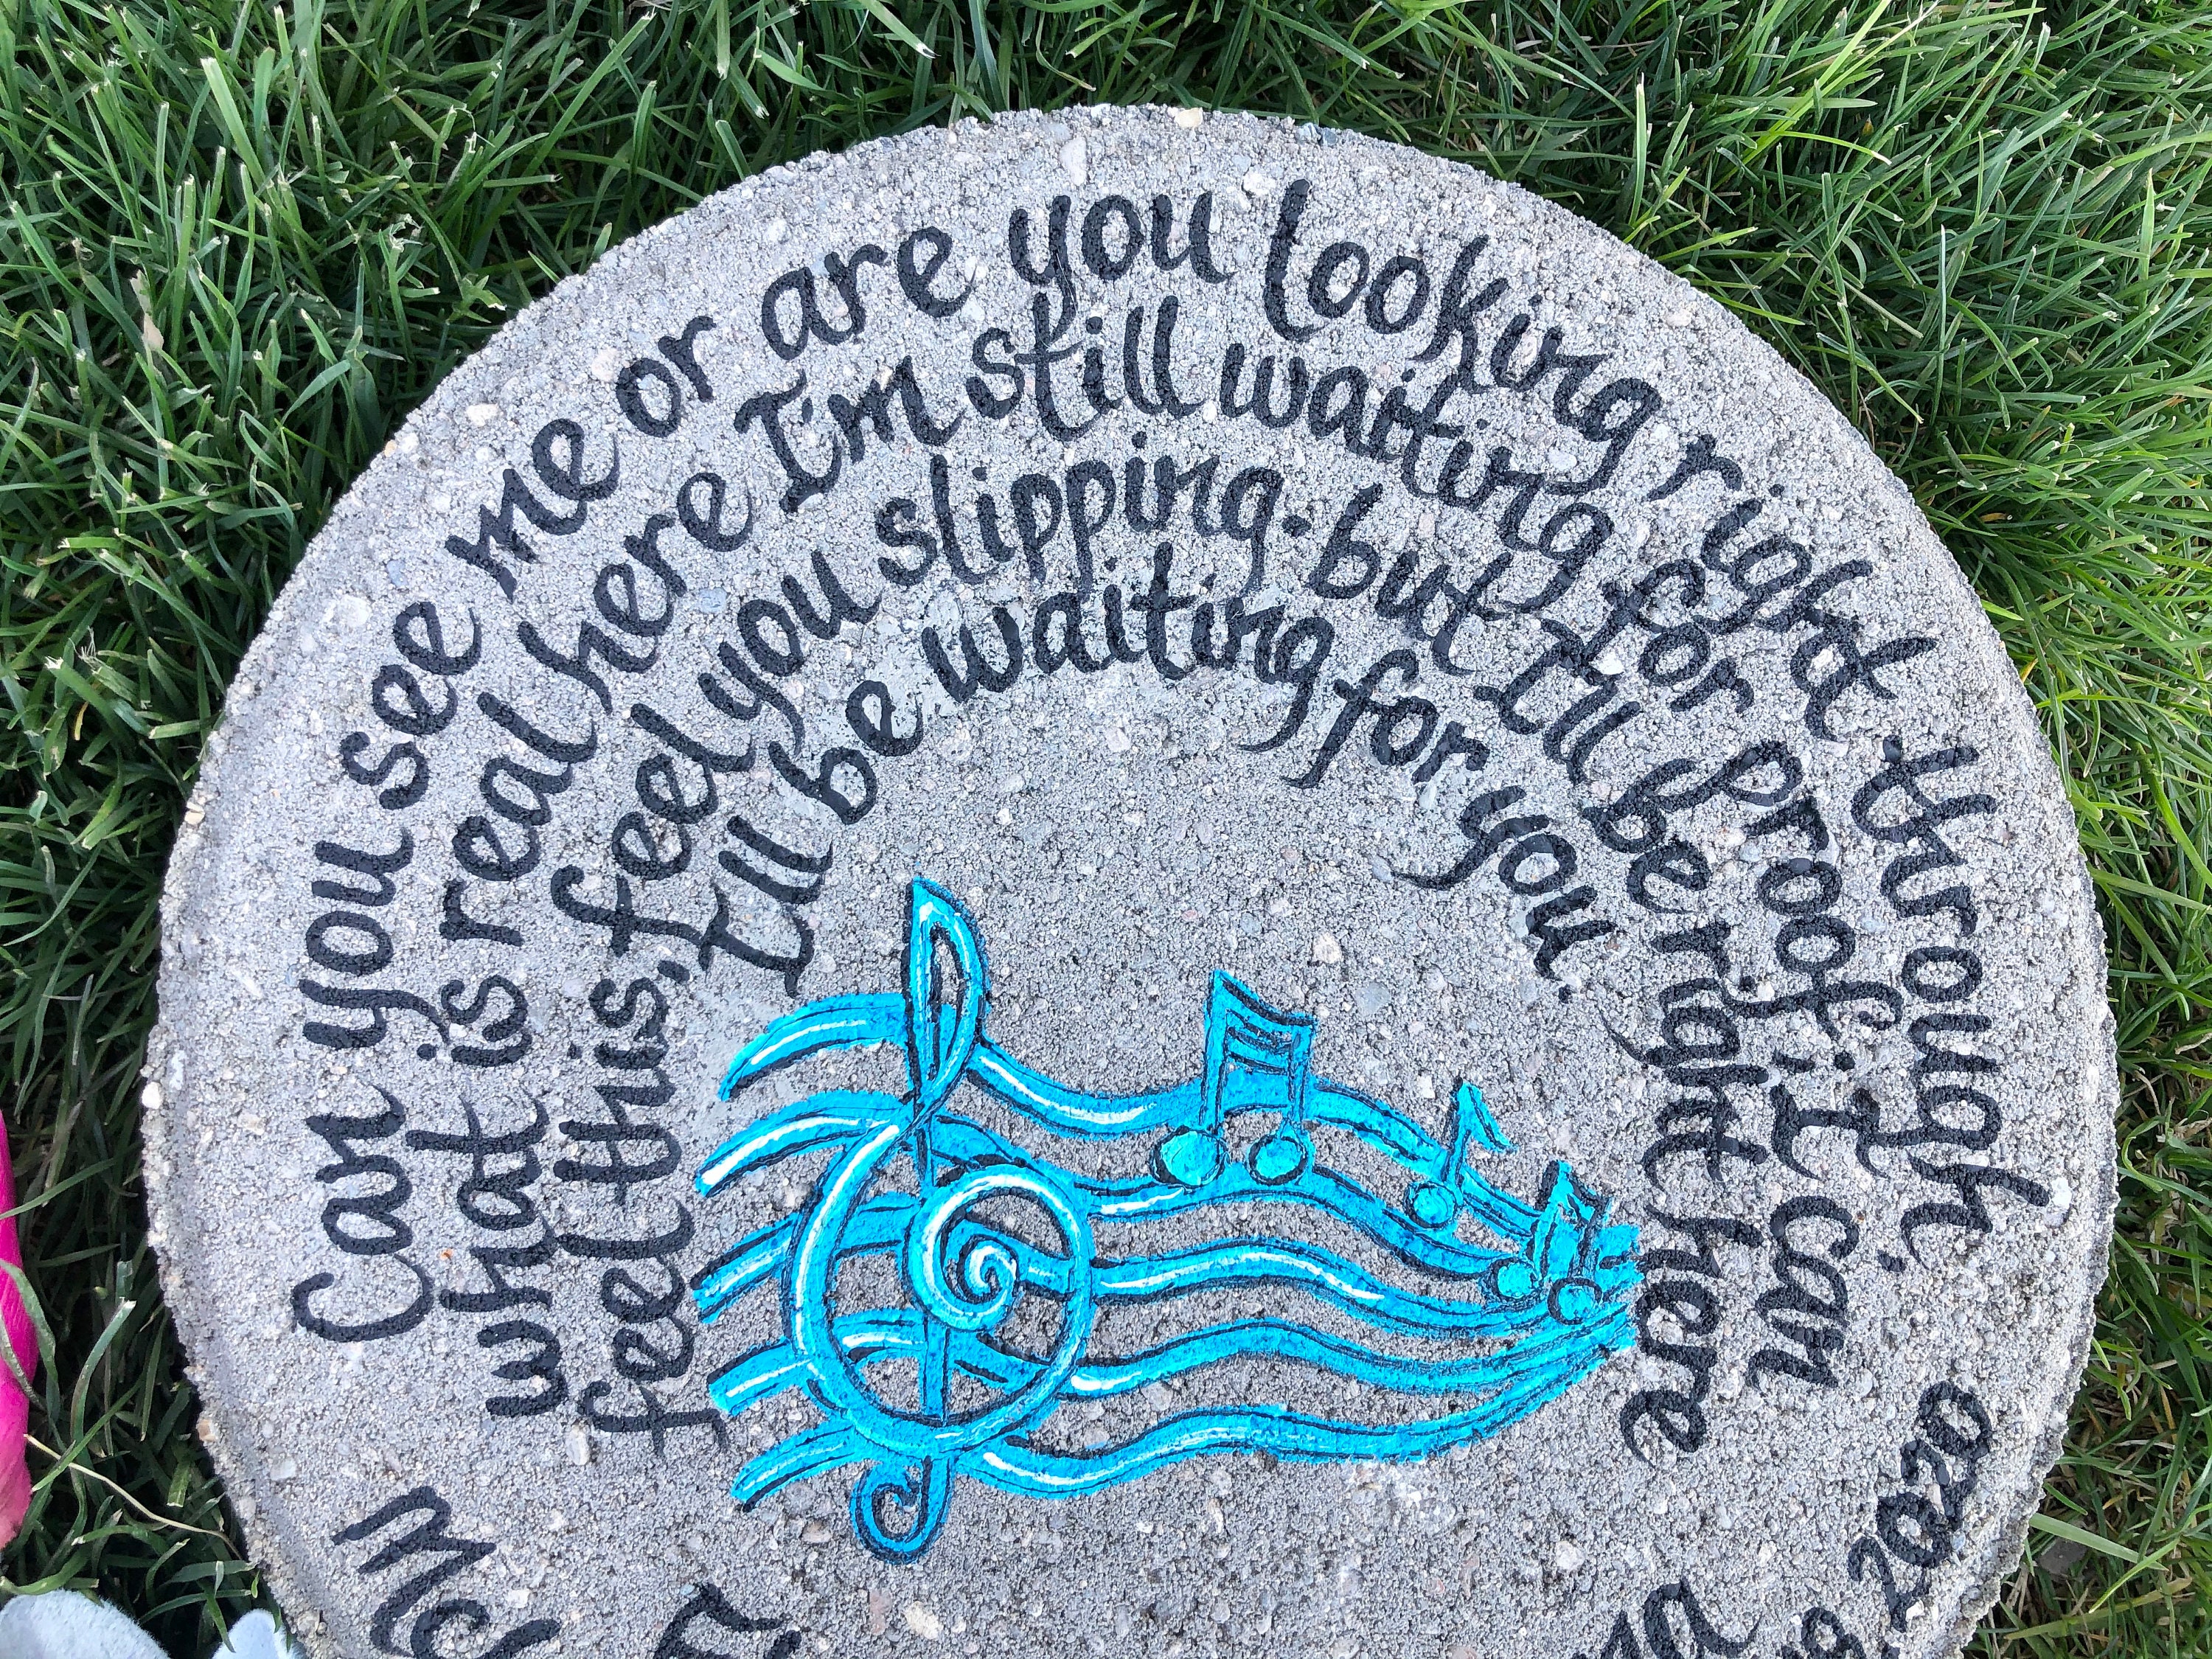 Can you see me or are you looking right through
what is real here I'm still waiting for proof. I can
feel this, feel you slipping - but I'll be right here
I'll be waiting for you.
2020